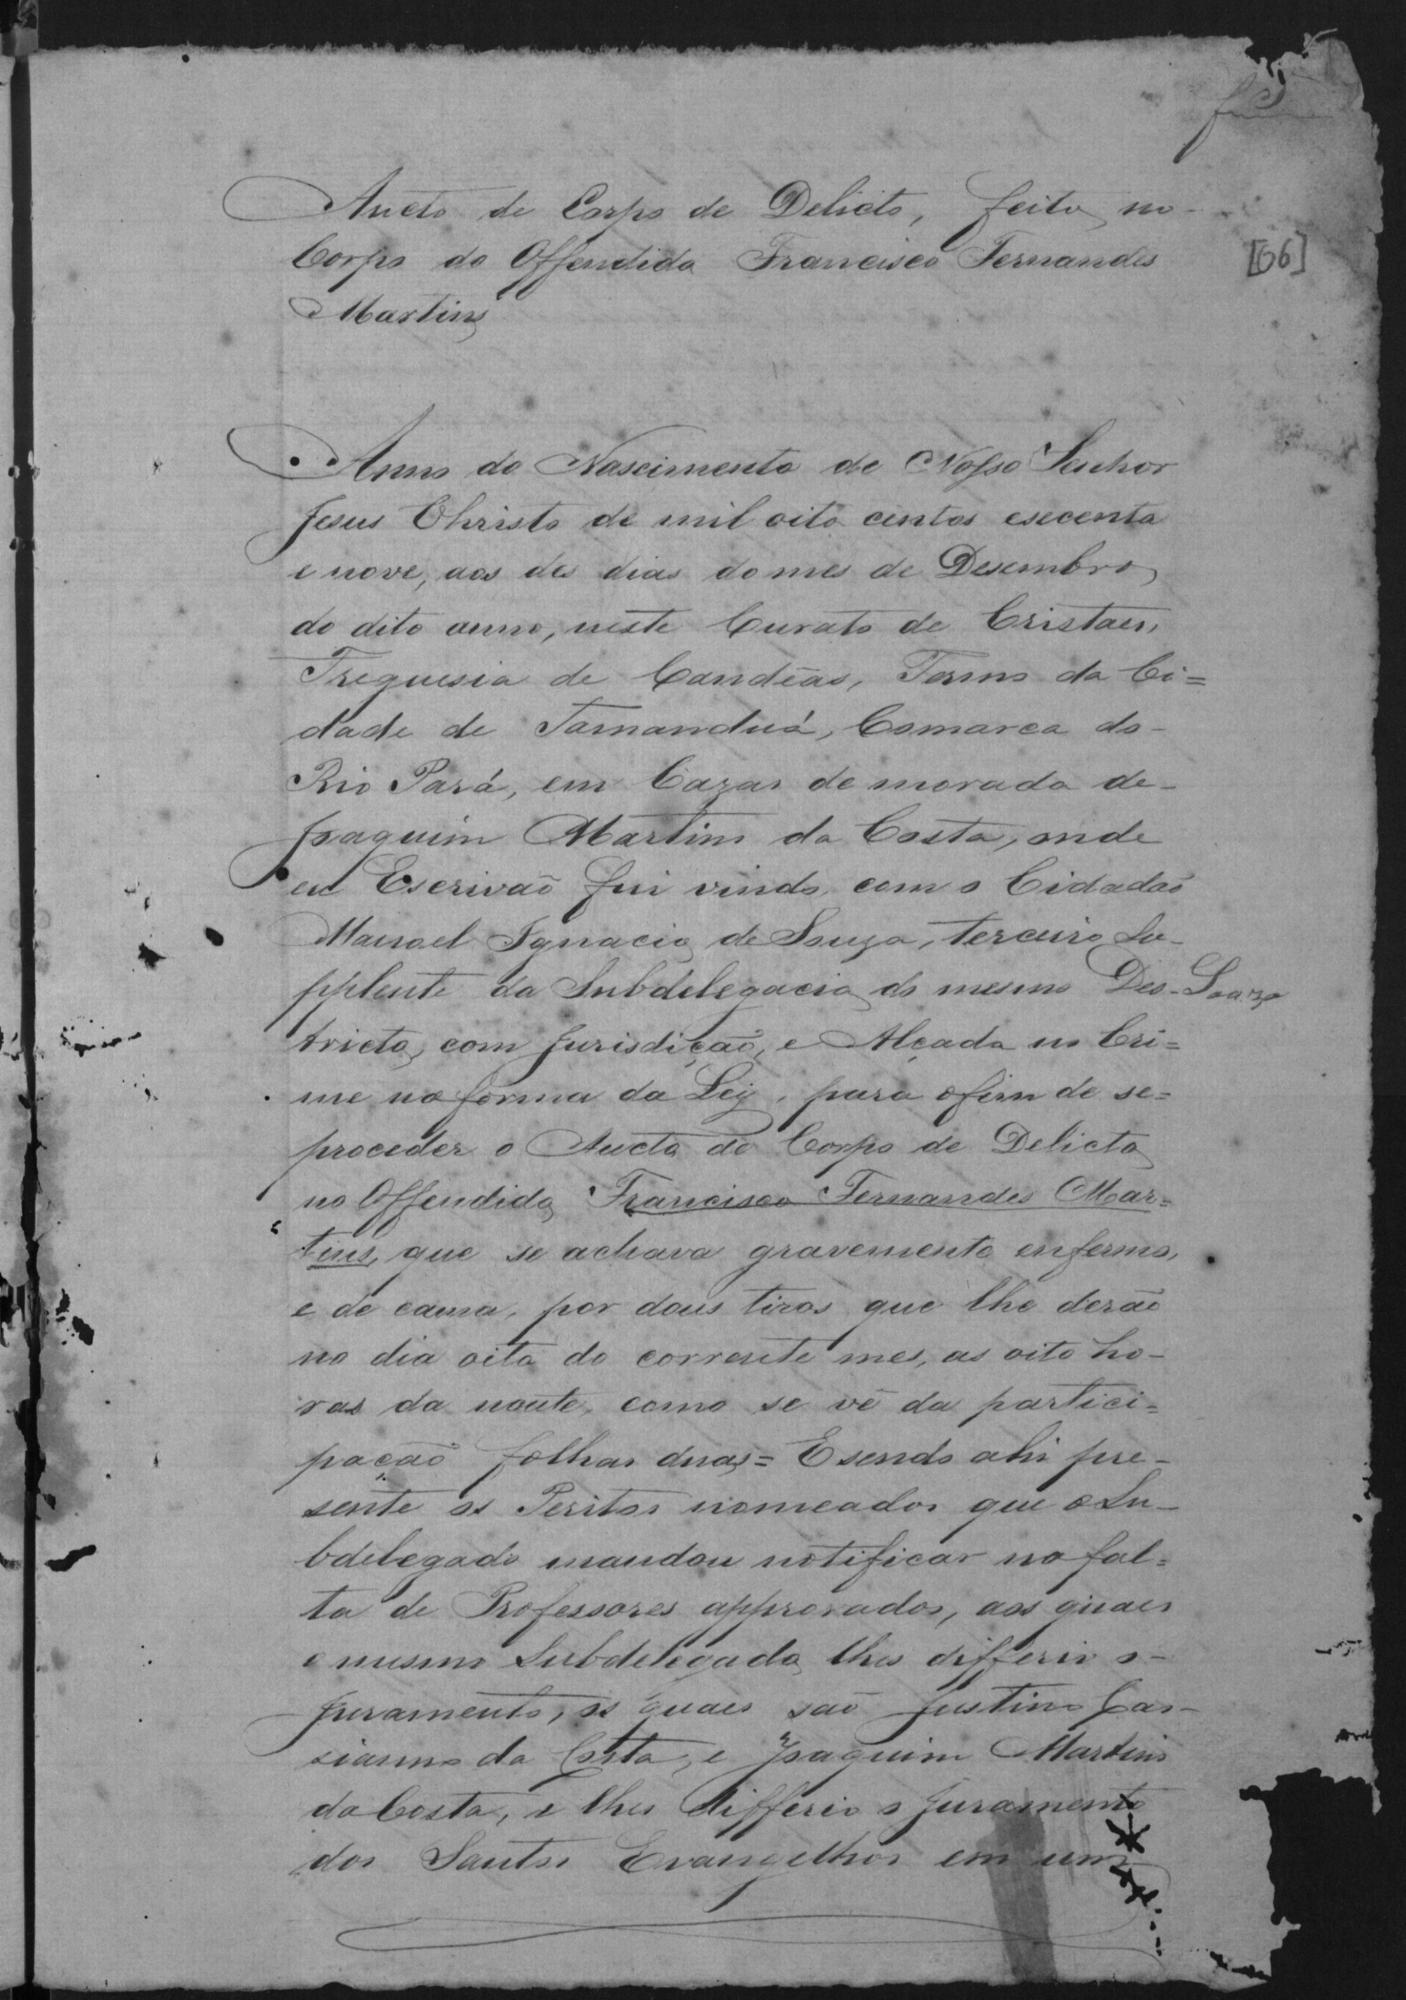 Aucto de Corpo de Delicto, feito no
Corpo do Offendido Francisco Fernandes
[06]
Martins
Anno do Nascimento de Nosso Senhor
Jesus Christo de mil oito centos esecenta
e nove, aos des dias do mes de Desembro,
do dito anno, neste Curato de Cristaes,
Freguesia de Candêas, Termo da Ci=
dade de Tamanduá, Comarca do-
Rio Pará, em Cazas de morada de-
Joaquim Martins da Costa, onde
eu Escrivaõ fui vindo com o Cidadaõ
Manoel Ignacio de Souza, terceiro Su-
pplente da Subdelegacia do mesmo Des-
Souza
tricto, com Jurisdiçaõ, e Alçada no Cri=
me na forma da Ley, para ofim de se=
proceder o Aucto de Corpo de Delicto
no Offendido Francisco Fernandes Mar=
tins, que se achava gravemente enfermo,
e de cama, por dous tiros que lhe deraõ
no dia oito do corrente mes, as oito ho-
ras da noute, como se vê da partici=
paçaõ folhas duas= E sendo ahi pre-
sente os Peritos nomeados que o Su-
bdelegado mandou notificar na fal=
ta de Professores approvados, aos quaes
o mesmo Subdelegado lhes differio o-
Juramento, os quaes saõ Justino Cas-
sianno da Costa, e Joaquim Martins
da Costa, e lhes differio o Juramento
dos Santos Evangelhos em um